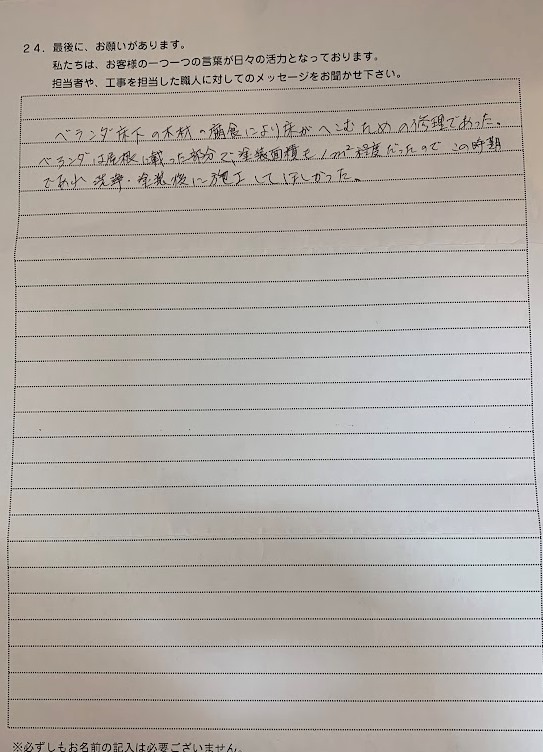 24．最後に、お願いがあります。
私たちは、お客様の一つ一つの言葉が日々の活力となっております。
担当者や、工事を担当した職人に対してのメッセージをお聞かせ下さい。
ベランダ床下の木材の腐食により床がへこむための修理であった。
ベランダは屋根に載った部分で、塗装面積も1m²程度だったのでこの時期
であれ洗浄・塗装後に施工してほしかった。
※必ずしもお名前の記入は必要ございません。